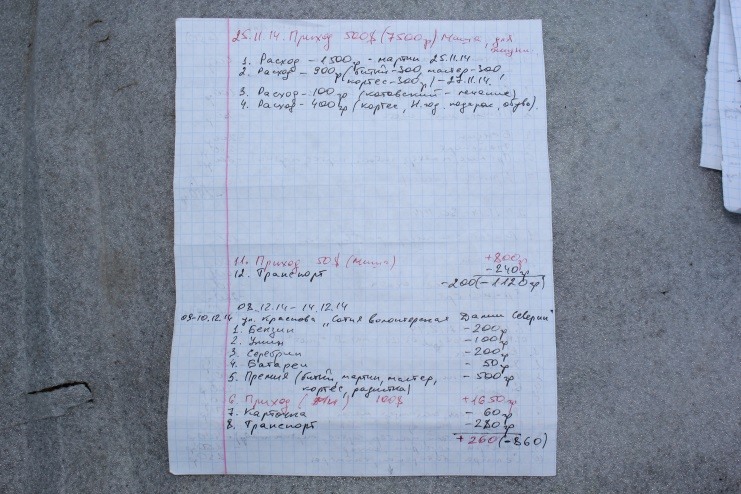 25.11.14. Приход 500$ (7500гр) Маша, для
жизни
1. Расход – 1500гр – мартин 25.11.14
2. Расход – 900гр (битий-300, мастер-300,
кортес-300гр) – 27.11.14.
3. Расход – 100гр (котовский – лечение)
4. Расход – 400гр (кортес, Н.год. подарок, обувь).
11. Приход 50$ (Маша) +800гр
12. Транспорт –240гр
–200 (–1120гр)
08.12.14 – 14.12.14
09-10.12.14 ул. Краснова „Сотня волонтерская Дании Северин"
1. Бензин –200гр
2. –100гр
3. Серебрин –200гр
4. Батареи – 50гр
5. Премия (битий, мартин, мастер, – 500гр
кортес, радистка)
6. Приход ( ) 100$ +1650гр
7. Карточка – 60гр
8. Транспорт –280гр
+260 (–860)